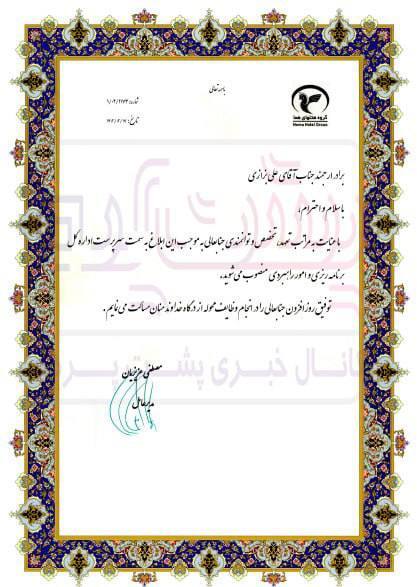 باسمه تعالی
گروه هتلهای هما
Homa Hotel Group
برادر ارجمند جناب آقای علی نزاری
با سلام و احترام،
با عنایت به مراتب تعهد، تخصص و توانمندی جنابعالی به موجب این ابلاغ به سمت سرپرست اداره کل
برنامه ریزی و امور راهبردی منصوب می شوید.
توفیق روزافزون جنابعالی را در انجام وظایف محوله از درگاه خداوند منان مسالت می نمایم.
مصطفی
مدیرعامل
کانال خبری پشت پر